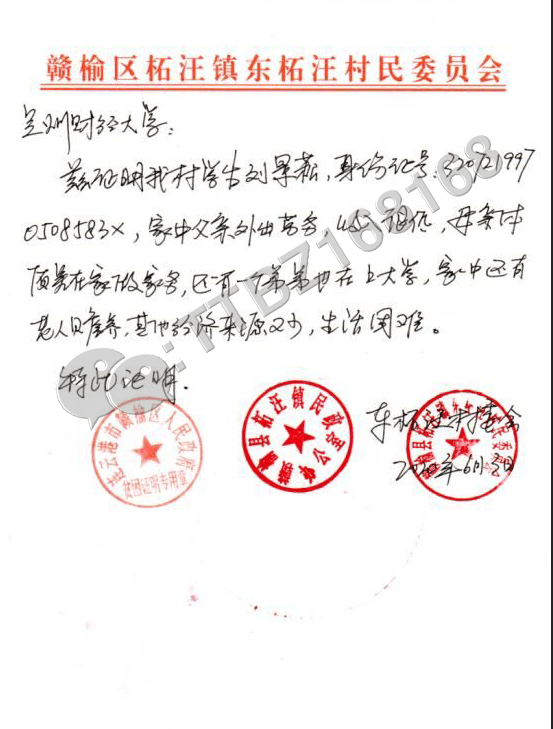 赣榆区柘汪镇东柘汪村民委员会
兰州财经大学:
兹证明我村学生刘景松,身份证号:320721997
0508583X,家中父亲外出务务,收入很低,母亲体
质差在家做家务,还有一个弟弟也在上大学,家中还有
老人赡养,其他经济来源又少,生活困难。
特此证明.
:TTBZ168168
连云港市赣榆区人民政府
贫困证明专用章
赣榆县柘汪镇民政办公章
赣榆县柘汪镇东柘汪村民委员会
东柘汪村委会
2020年6月3日